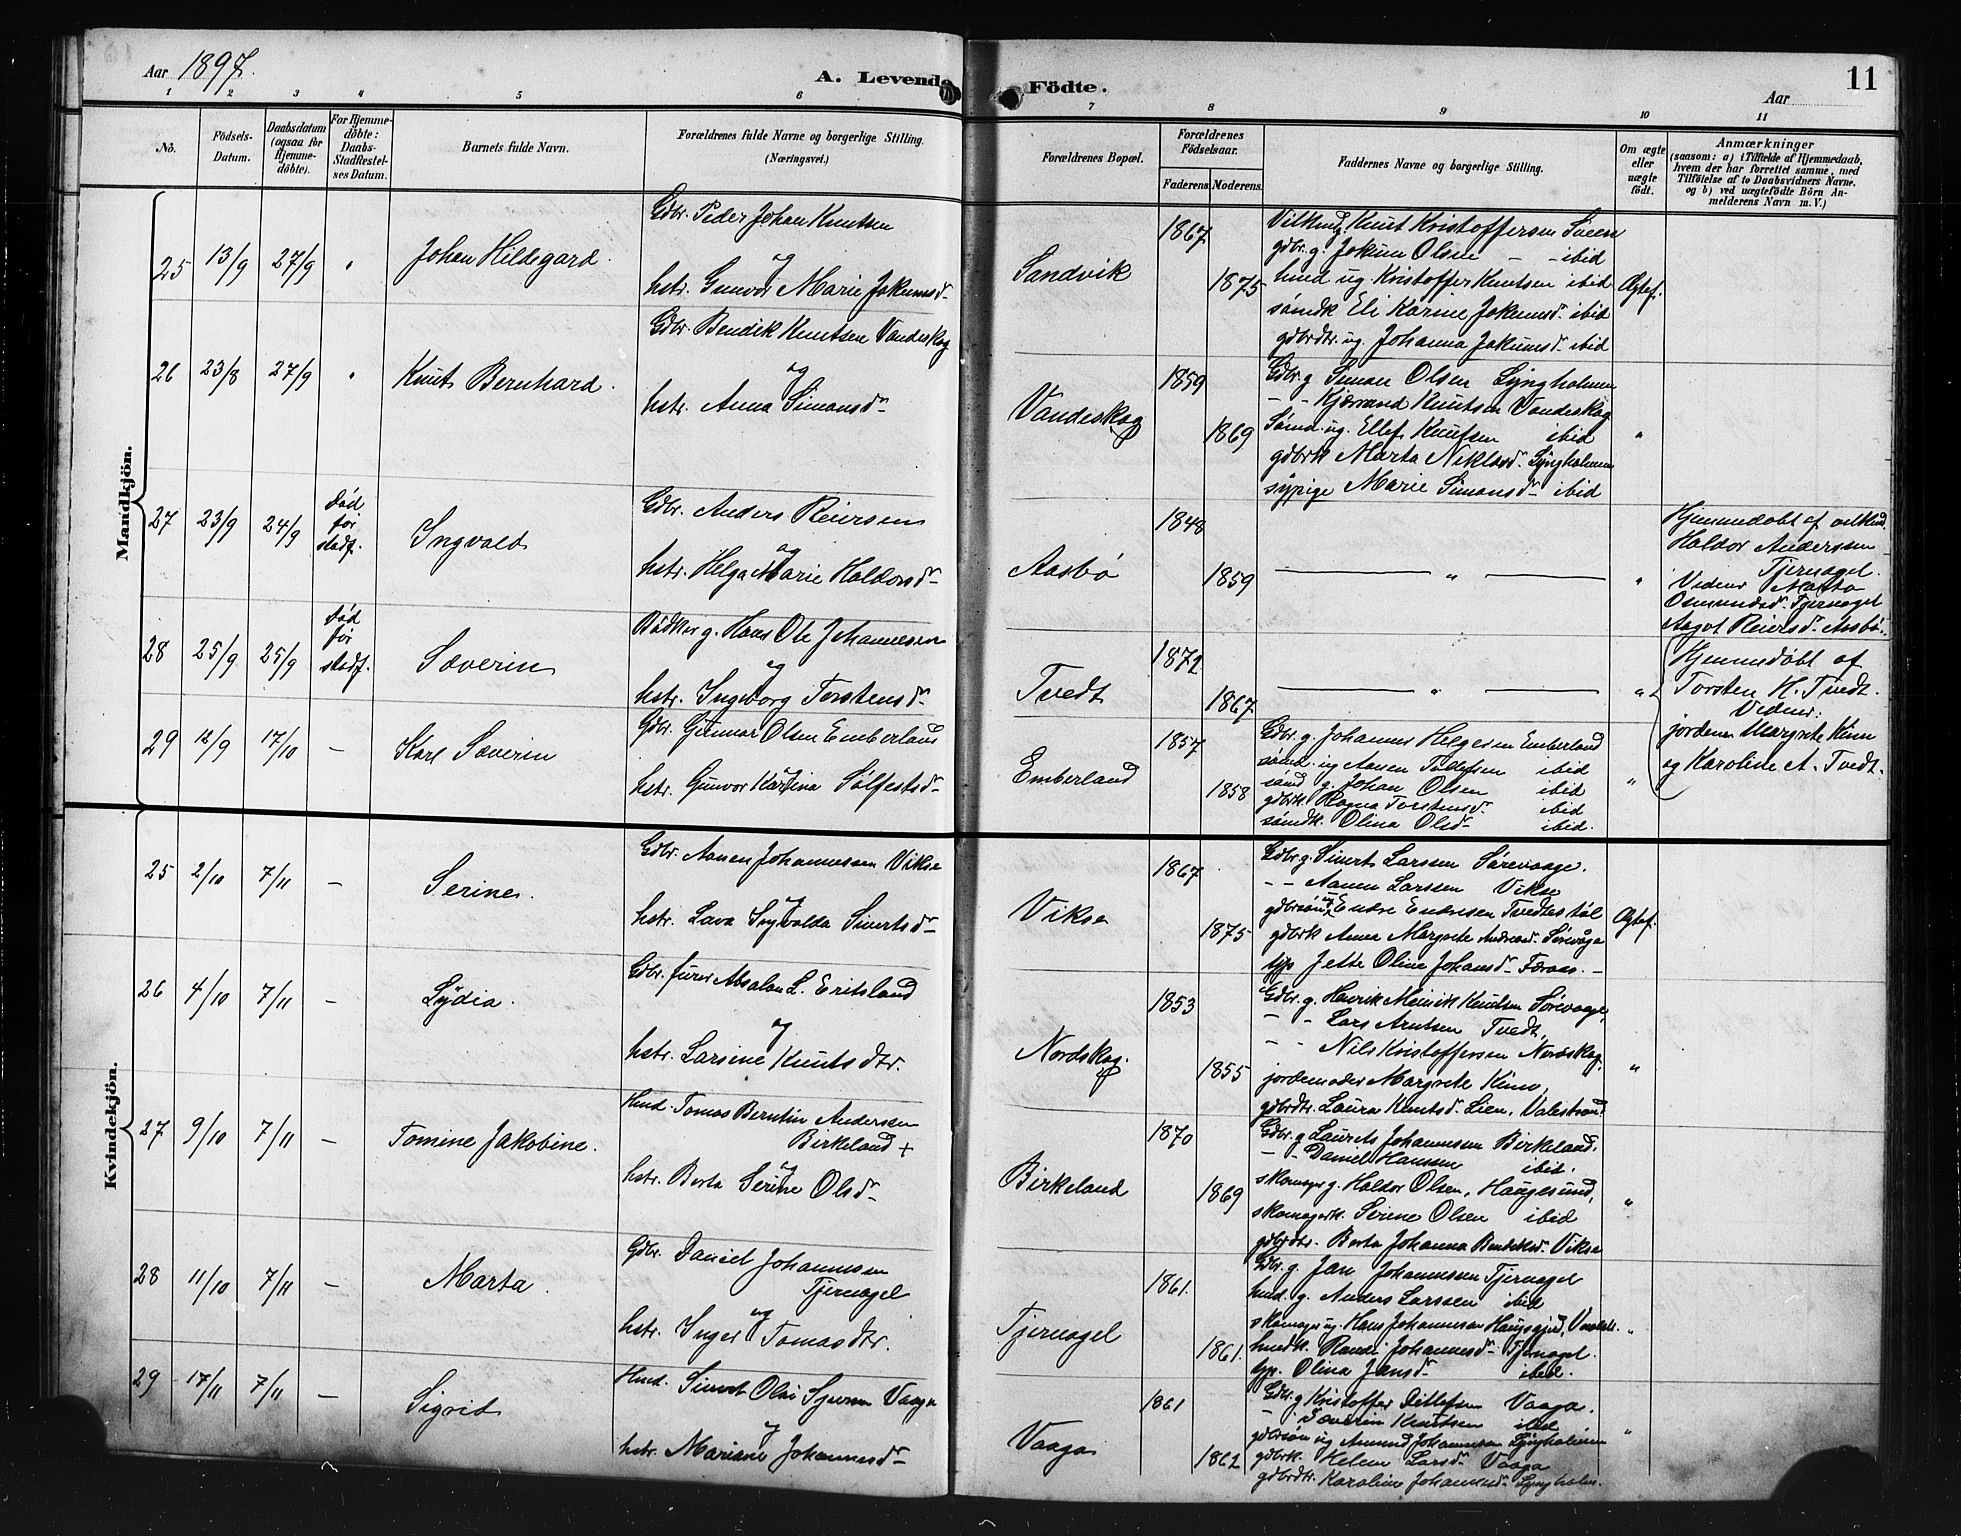 Aar 1897.
A. Levende Fødte.
Aar
11
1 2 3 4 5 6 7 8 9 10 11
No.
Födsels-Datum.
Daabsdatum (ogsaa for Hjemme-döbte).
For Hjemme-döbte: Daabs-Stadfæstel-ses Datum.
Barnets fulde Navn.
Forældrenes fulde Navne og borgerlige Stilling.
(Næringsvei.)
Forældrenes Bopæl.
Forældrenes Födselsaar.
Faderens. Moderens.
Faddernes Navne og borgerlige Stilling.
Om ægte eller uægte födt.
Anmærkninger
(saasom: a) i Tilfælde af Hjemmedaab,
hvem der har forrettet samme, med
Tilföielse af to Daabsvidners Navne.
og b) ved uægtefödte Börn An-
melderens Navn m. V.)
Mandkjön.
25 13/9 27/9 " Johan Hildegard.
Gdbr. Peder Johan Knutsen
og
hstr. Gunvor Marie Jakumsd-
Sandvik
1867
1875
Knut Kristoffersen Sveen
gdbr. g. Jokum Olsen - - ibid
hmd ug. Kristoffer Knutsen ibid
sömdk Eli Karine Jokumsd- ibid
gdbrdtr. ug. Johanna Jakumsd- ibid
Ægtef.
26 23/8 27/9 " Knut Bernhard.
Gdbr. Bendik Knutsen Vandeskog
og
hstr. Anna Simonsd-
Vandeskog
1859
1869
Gdbr. g Simon Olsen Lyngholmen
- - Knutsen Vandeskog
Sömd. ug. Ellef Knutsen ibid
gdbrk Marta Niklasd. Lyngholmen
sypige Marie Simonsd- ibid
"
27 23/9 24/9 Död før stadf. Ingvald
Gdbr. Anders Reiersen
og
hstr. Helga Marie Haldorsd-
Aasbø
1848
1859
"
"
Hjemmedøbt af
Haldor Anderssen
Tjernagel.
Vidner Marta
Osmundsd. Tjernagel
Aagot Reiersd. Aasbø.
28 25/9 25/9 Død før stadf. Sæverin
Bødker g. Hans Ole Johannesen
og
hstr. Ingeborg Torstensd-
Tvedt
1872
1867
"
"
Hjemmedøbt af
Torsten H. Tvedt.
Vidner:
jordemor Margrete Kinn
og Karoline A. Tvedt.
29 12/9 17/10 - Karl Sæverin
Gdbr. Gunnar Olsen Emberland
hstr. Gunvor Karina Solfestsd-
Emberland
1857
1858
Gdbr. g. Johannes Helgesen Emberland
sömd. ug Aanen Tollefsen ibid
sömd g. Johan Olsen ibid
gdbrk. Ragna Torstensd. ibid
sömdk. Olina Olsd- ibid.
"
Kvindekjön.
25 2/10 7/11 - Serine.
Gdbr. Aanen Johannessen Vikse
og
hstr. Lava Ingvalda Sivertsd-
Vikse
1867
1875
Gdbr. g. Sivert Larssen Sørevaage.
- - Aanen Larssen Vikse
gdbrsön ug. Endre Endresen Tvedtestöl
gdbrk Anna Margrete Andreasd. Sørevåge
tjp Jette Olina Johansd- Færaas. -
Ægtef.
26 4/10 7/11 - Lydia.
Gdbr. furer Absalon L. Eritsland
og
hstr. Larsine Knutsdtr.
Nordskog.
1853
1855
Gdbr. g. Henrik Meinik Knutsen Sørevaage,
- - Lars Arntsen Tvedt,
- - Nils Kristoffersen Nordskog,
jordemoder Margrete Kinn,
gdbrdtr. Laura Knutsd. Lien, Valestrand
"
27 9/10 7/11 - Tomine Jakobine.
Hmd. Tomas Berntin Andersen
Birkeland +
og
hstr. Berta Serine Olsd-
Birkeland
1870
1869
Gdbr. g Laurits Johannesen Birkeland.
- - Daniel Hanssen ibid.
skomager g. Haldor Olsen, Haugesund,
skomagerk. Serine Olsen ibid
gdbrdtr. Berta Johanna Bendiksd. Vikse
"
28 11/10 7/11 - Marta.
Gdbr. Daniel Johannesen
Tjernagel
og
hstr. Inger Tomasdtr.
Tjernagel
1861.
1861.
Gdbr. g. Jan Johannesen Tjernagel
hmd. g. Anders Larssen ibid
skomager ug. Hans Johannesen
hmdk. Randi Johannesd- Tjernagel.
tjp. Olina Jansd- ibid.
"
29 17/11 7/11 - Sigrid
Hmd. Sivert Olai Vaage
og
hstr. Mariane Johannesd-
Vaaga
1861
1862
Gdbr. g Kristoffer Ditlefsen Vaaga.
- - Sæverin Knutsen ibid
gdbrsön ug Amund Johannesen Lyngholmen
gdbrk. Helene Larsd- Vaaga
gdbrdtr. Karoline Johannesd- Lyngholm.
"